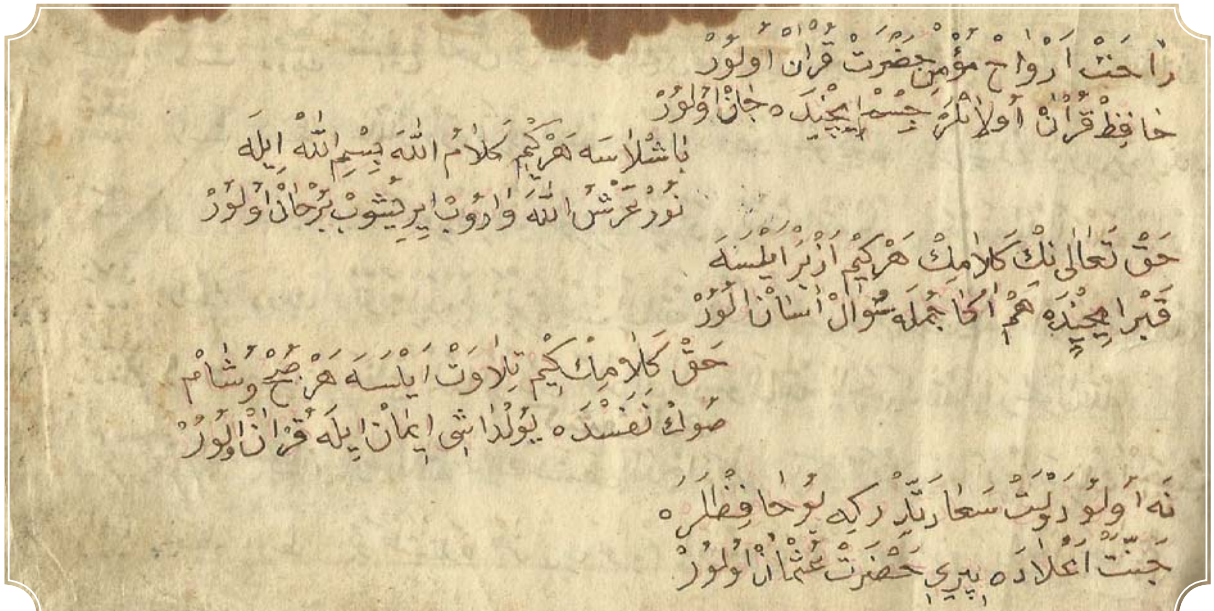 راحت ارواح مؤمن حضرت قرآن اولور
حافظ قرآن اولانلر جسم ايچنده جان اولور
باشلاسه هركيم كلام الله بسم الله ايله
نور عرش الله واروب ايريشوب برحان اولور
حق تعالى نك كلامك هركيم ازبر ايلسه
قبر ايچنده هم اكا جمله سؤال اسان الور
حق كلامك كيم تلاوت ايلسه هر صبح وشام
صوك نفسده يولداشى ايمان ايله قرآن الور
نه اولو دولت سعادتدر كه بو حافظلره
جنت اعلاده پيرى حضرت عثمان اولور